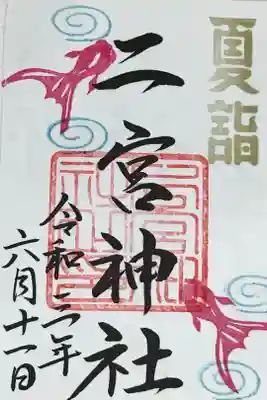 夏詣
二宮神社
令和三年
六月十一日